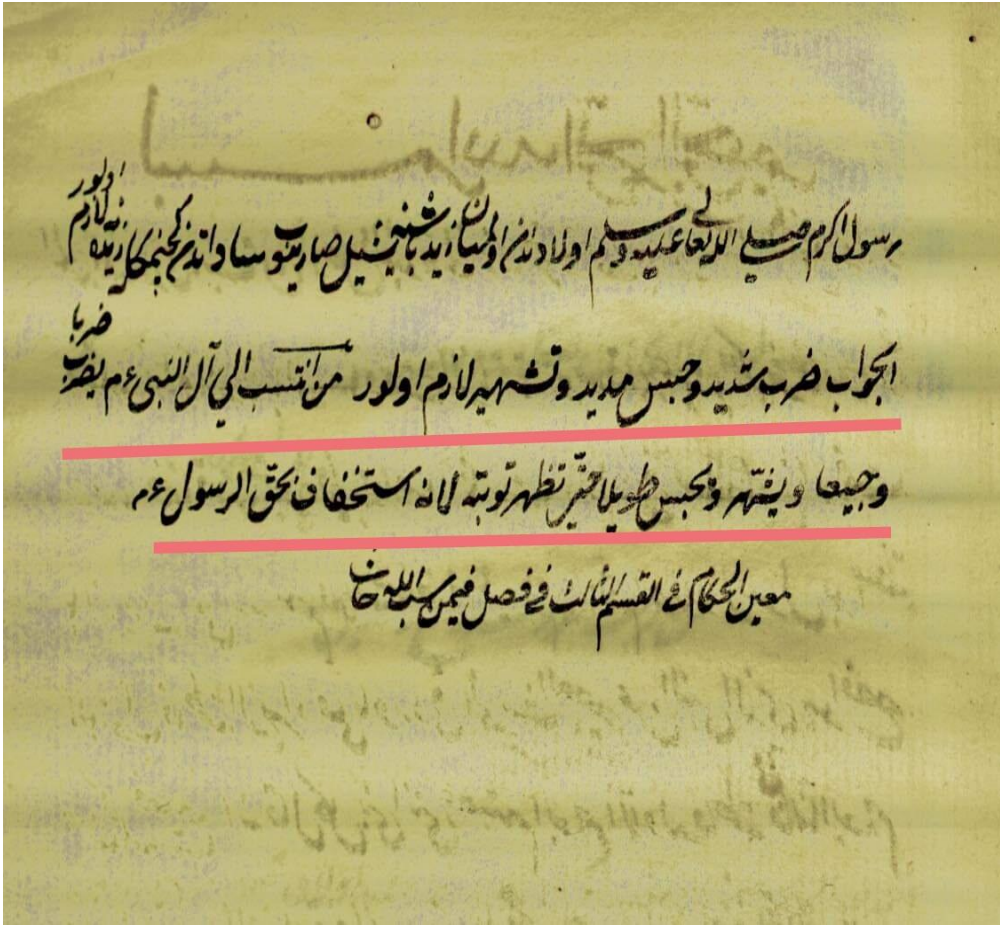 رسول اكرم صلى الله تعالى عليه وسلم اولادندن اولميان زيد باشنه يشيل صارينوب ساداتدن كچنمكله زيده نه لازم اولور
الجواب ضرب شديد وحبس مديد وتشهير لازم اولور من انتسب الي آل النبى ءم يضرب ضربا
وجيعا ويشهّر ويحبس طويلا حتّى تظهر توبته لانه استخفاف بحقّ الرسول ءم
معين الحكام فى القسم الثالث فى فصل فيمن سب الله